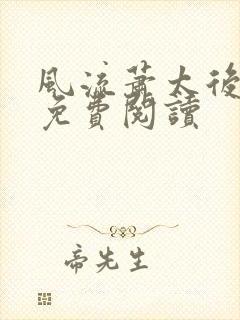 風流蕭太後
免費閱讀
帝先生